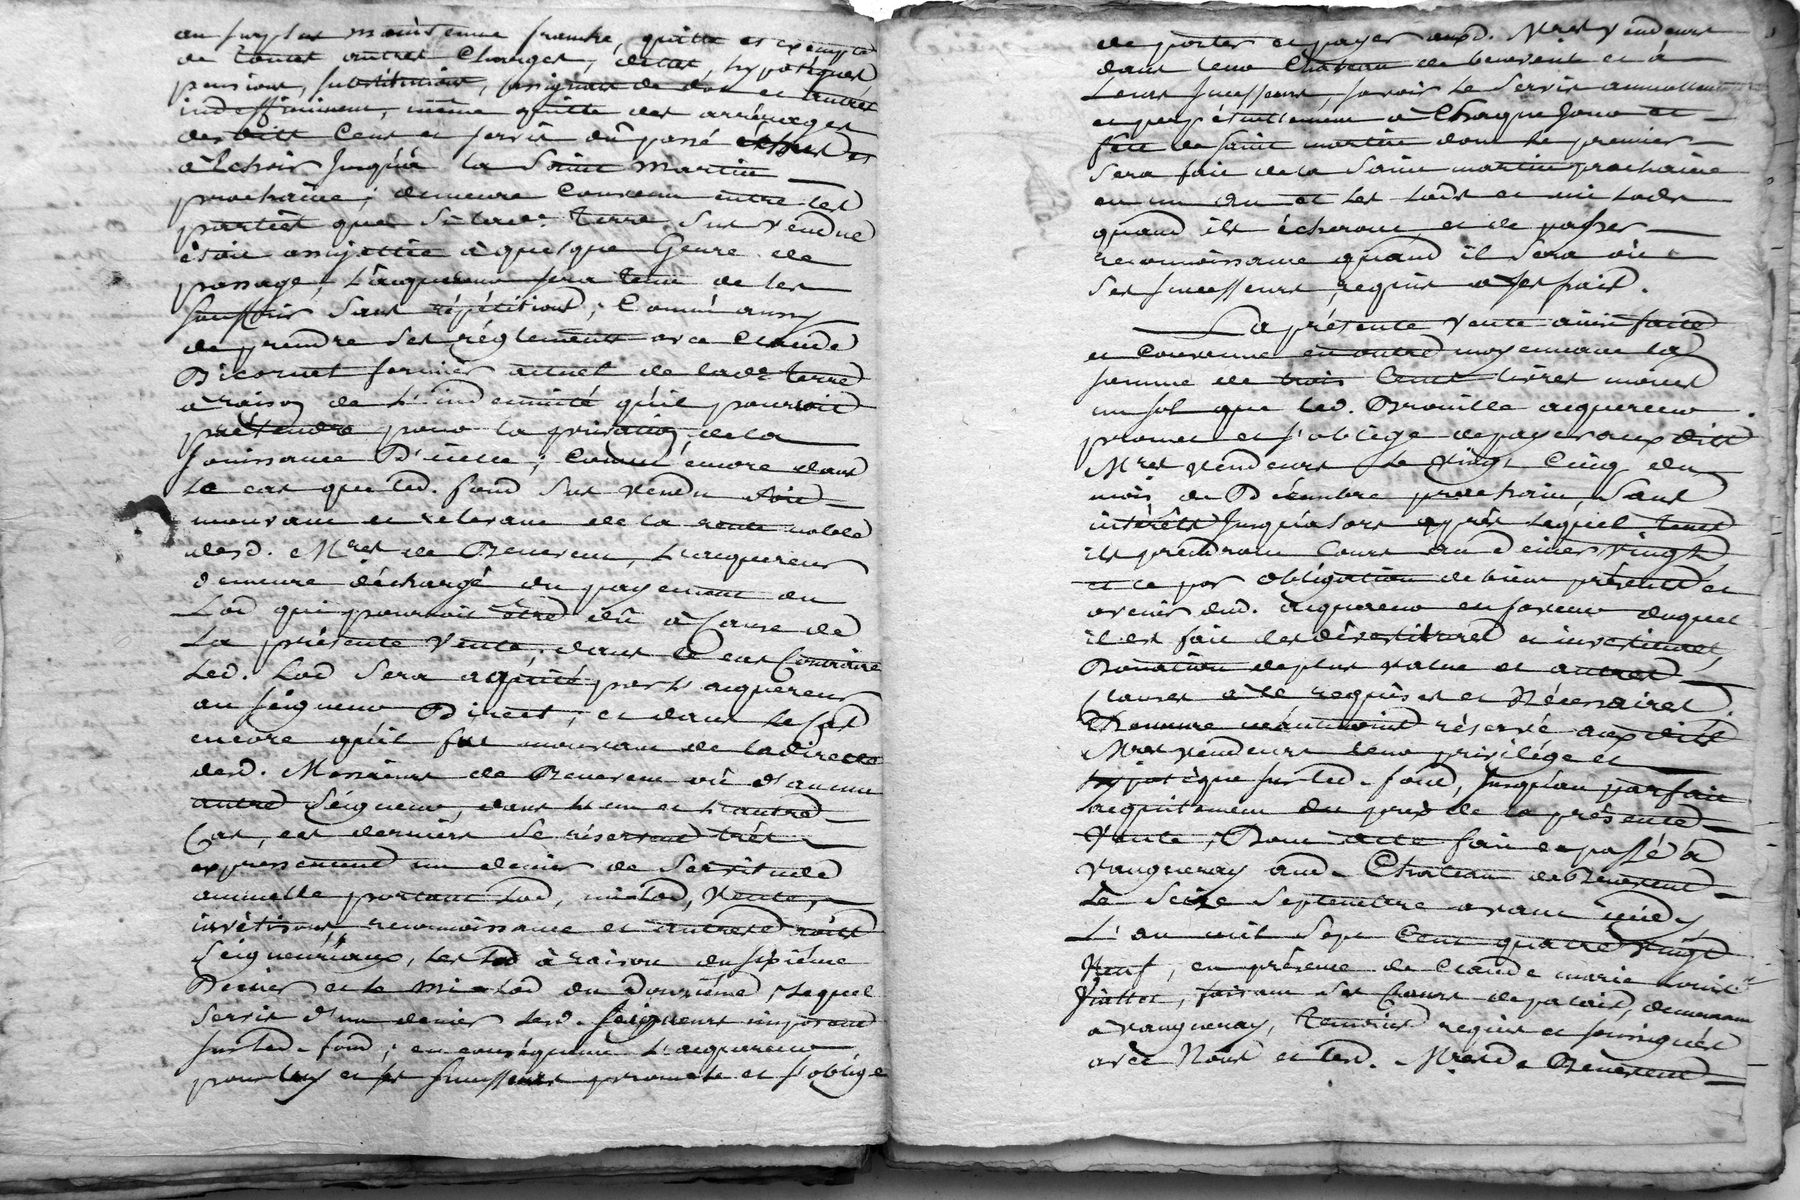 au surplus moienne franche, quitte et exempte
de toutes autres Charges, dettes, hypotèques
pensions, substitutions, assignats de dot et autres
indeffiniment, même quitte des arrérages
desdits Cens et servis du passé
à Echoir jusqu'à la Saint Martin
prochaine; demeure Convenu entre les
parties que Si lade. terre Sus Vendue
étoit assujettie à quelque Genre de
passage, L'acquereur sera tenu de les
souffrir Sans répétitions; Comme aussy
de prendre Ses réglements avec Claude
Bicornet fermier actuel de lade. terre
à raison de L'indemnité qu'il pourroit
prétendre pour la privation de la
Jouissance D'icelle; Comme encore dans
Le cas que led. fond Sus Vendu Soit
mouvant et relevant de la rente noble
desd. Mrs. de Benevent, L'acquereur
demeure déchargé du payement du
Lod qui pourroit être dû à Cause de
La présente Vente, dans le cas Contraire
Led. Lod Sera acquité par L'acquereur
au seigneur Direct; et dans le Cas
encore qu'il fut mouvant de la directe
desd. Messieurs de Benevent où d'aucun
autre Seigneur, dans L'un et L'autre
Cas, ces derniers Se réservent très
expressement un denier de Servitude
annuelle portant Lod, milod, Vente,
invétison, reconnoissance et autres droits
Seigneuriaux, les Lod à raison du sixième
Denier et le Mi-Lod du Douzième, Lequel
Servis d'un denier lesd. Seigneurs imposent
sur led. fond; en conséquence L'acquereur
pour luy et ses Successeurs promete et s'oblige
de porter et payer auxd. Mrs. Vendeurs
dans leur Château de benevent et à
Leurs Successeurs, savoir le Servis annuellement
et perpétuellement à Chaque Jour et
fête de Saint martin dont le premier
Sera fait de la Saint martin prochaine
en un an et les Lods et mi Lods
quand ils écheront, et de passer
reconnoissance quand il Sera où
Ses Successeurs requis à Ses frais.
La présente Vente ainsi faite
et Convenue en outre moyennant la
somme de trois Cent livres moins
un sol que led. Brouille acquereur
promet et s'oblige de payer aux dits
Mrs. Vendeurs le Vingt Cinq du
mois de Décembre prochain Sans
intérêts Jusqu'alors après Lequel tems
ils prendront Cours au denier Vingt
et ce par obligation de biens présents et
avenir dud. acquereur en faveur duquel
il est fait les dévestitures et investitures,
Donation de plus value et autres
Clauses à ce requises et Nécessaires.
Demeure néantmoins réservé aux dits
Mrs Vendeurs leur privilége et
hypotèque sur led. fond, Jusqu'au parfait
acquittement du prix de la présente
Vente, Dont acte fait et passé à
Vaugneray aud. Château de benevent
Le Seize Septembre avant midy
L'an mil Sept Cent quatre Vingt
Neuf, en présence de Claude marie Louis
Viallet, faisant Ses Cours de palais, demeurant
à Vaugneray, temoins requis et soussignés
avec Nous et lesd. Mrs. de Benevent